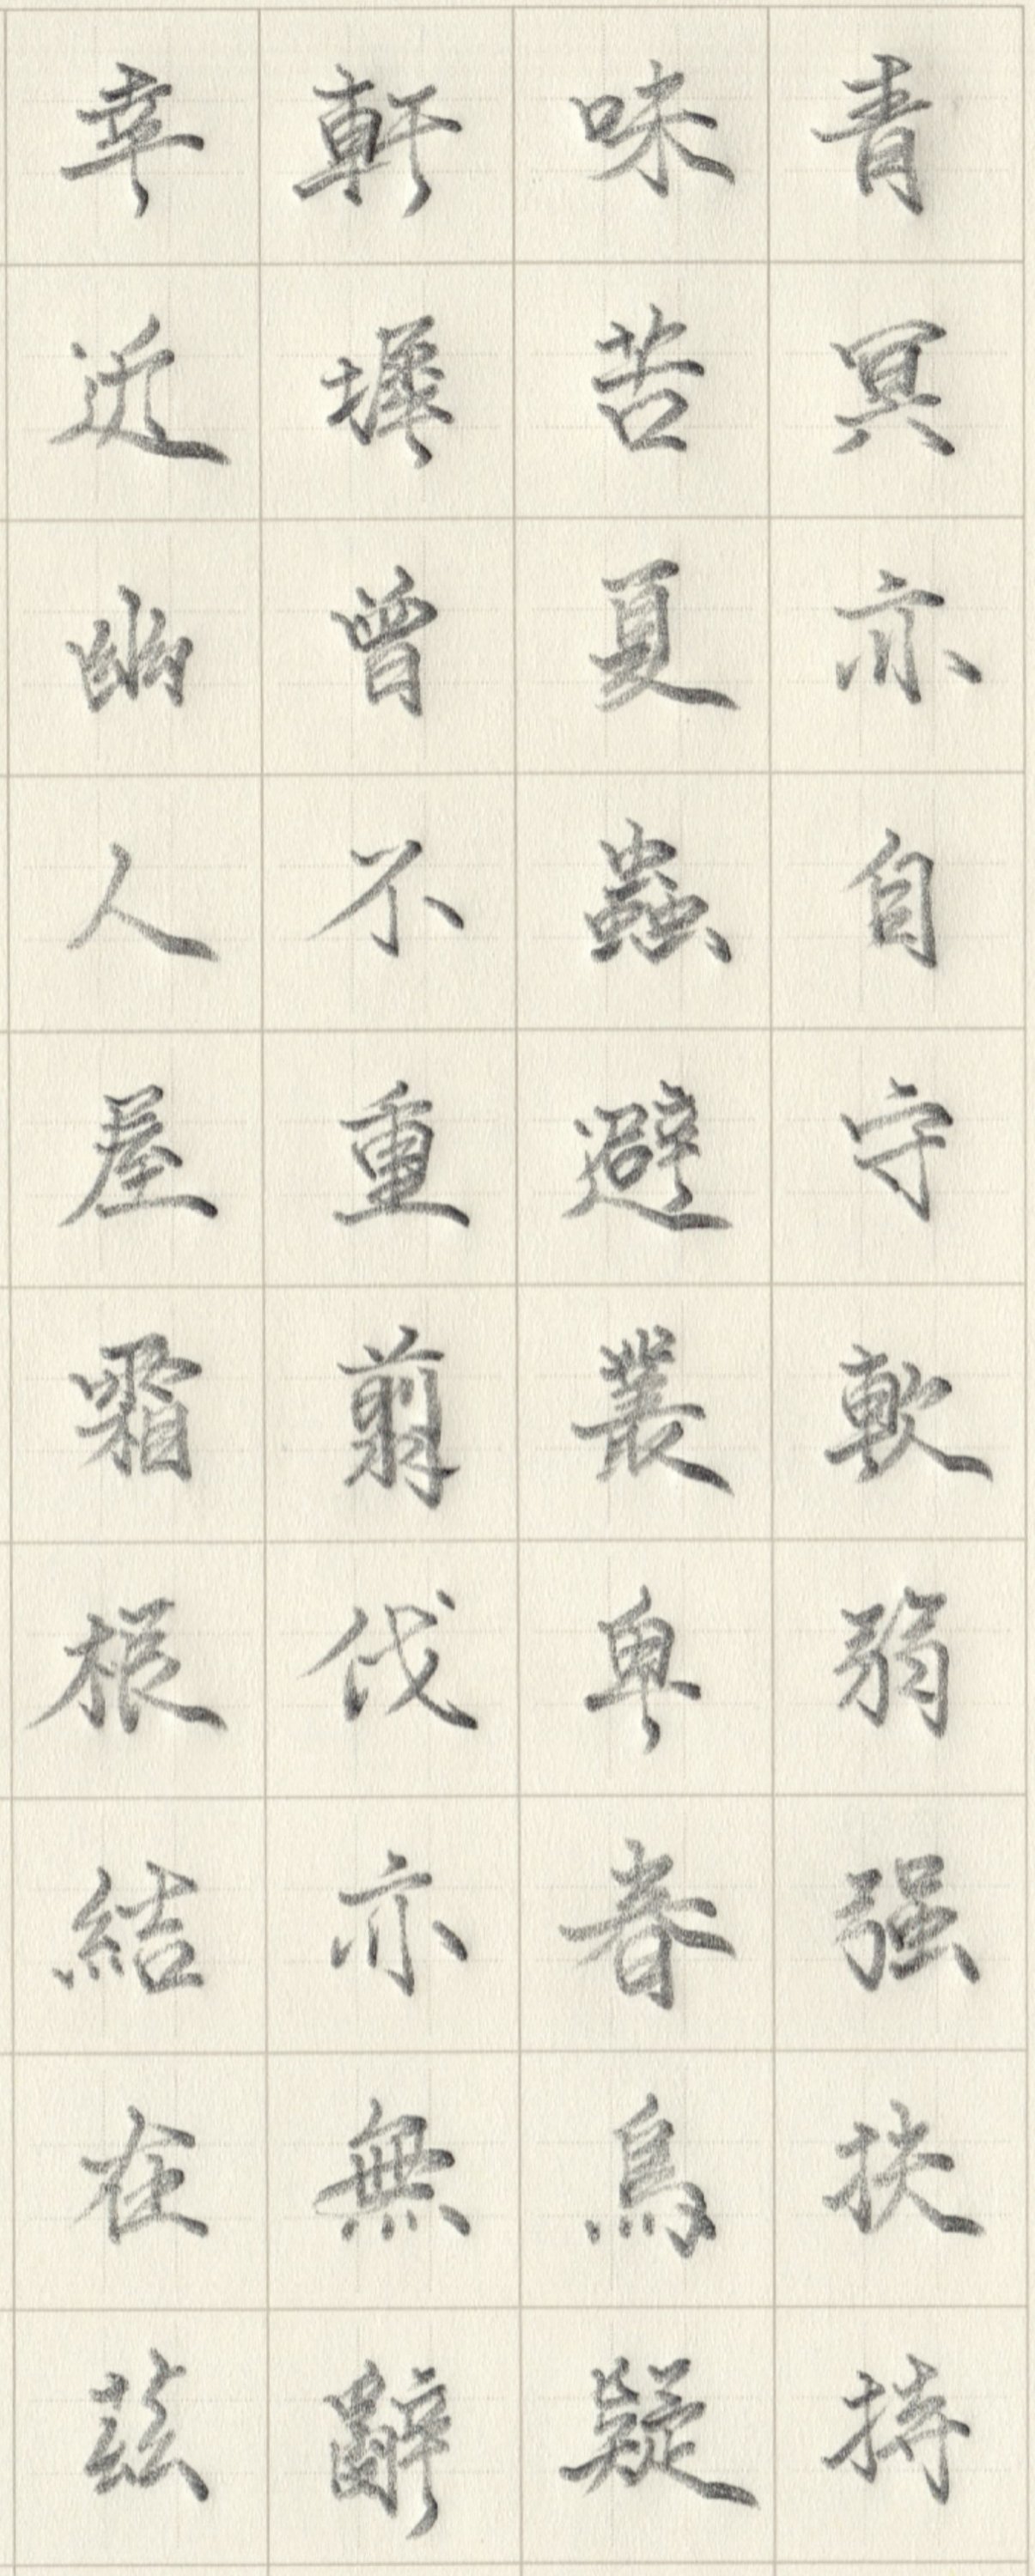 青冥亦自守軟弱强扶持
味苦夏蟲避叢卑春鳥疑
軒墀曾不重翦伐亦無辭
幸近幽人屋霜根結在茲